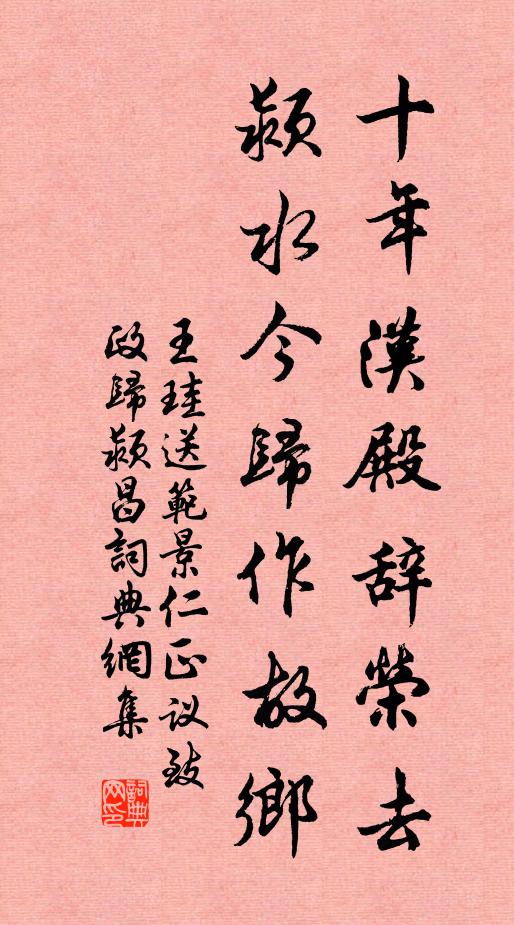 十年漢殿辞榮去
颍水今歸作故鄉
王珪送範景仁正议致
政歸颍昌詞典網集
詞典网印